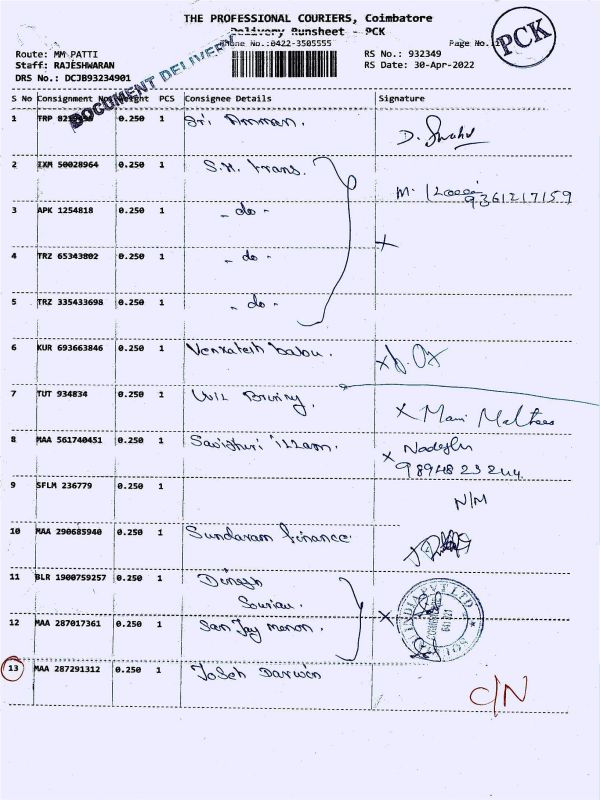 THE PROFESSIONAL COURIERS, Coimbatore
Delivery Runsheet - PCK
Phone No.:0422-3505555
Page No.:
PCK
Route: MM PATTI
RS No.: 932349
Staff: RAJESHWARAN
RS Date: 30-Apr-2022
DRS No.: DCJB93234901
DOCUMENT DELIVERY
S No Consignment PCS Consignee Details Signature
1 TRP 0.250 1 Sri Amman.
2 IXM 50028964 0.250 1 S.M. trans. M. 9361217159
3 APK 1254818 0.250 1 - do - X
4 TRZ 65343802 0.250 1 - do -
5 TRZ 335433698 0.250 1 - do -
6 KUR 693663846 0.250 1 Venkatesh babu. X
7 TUT 934834 0.250 1 X Mani
8 MAA 561740451 0.250 1 X
9894823244
9 SFLM 236779 0.250 1 N/M
10 MAA 290685940 0.250 1 Sundaram finance.
11 BLR 1900759257 0.250 1 Dinesh
12 MAA 287017361 0.250 1 Sanjay menon. X
INDIA PVT LTD
641 021
13 MAA 287291312 0.250 1 Joseh Darwin C/N